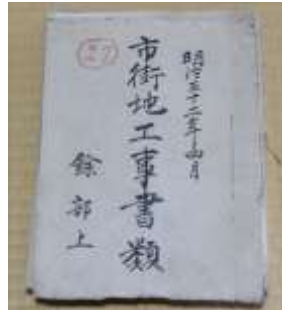 明治三十二年四月
市街地工事書類
餘部上